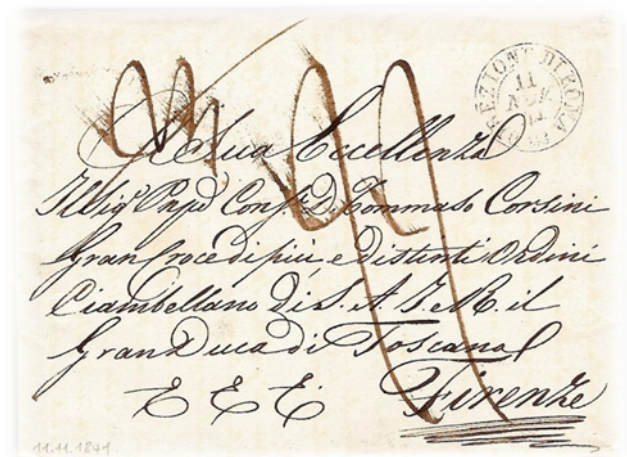 DIREZIONE DI ROMA
11
NOV.
41
A Sua Eccellenza
Tommaso Corsini
Gran Croce di più e distinti Ordini
Ciambellano di S. A. I. e R. il
Gran Duca di Toscana
E E E
Firenze
11.11.1841